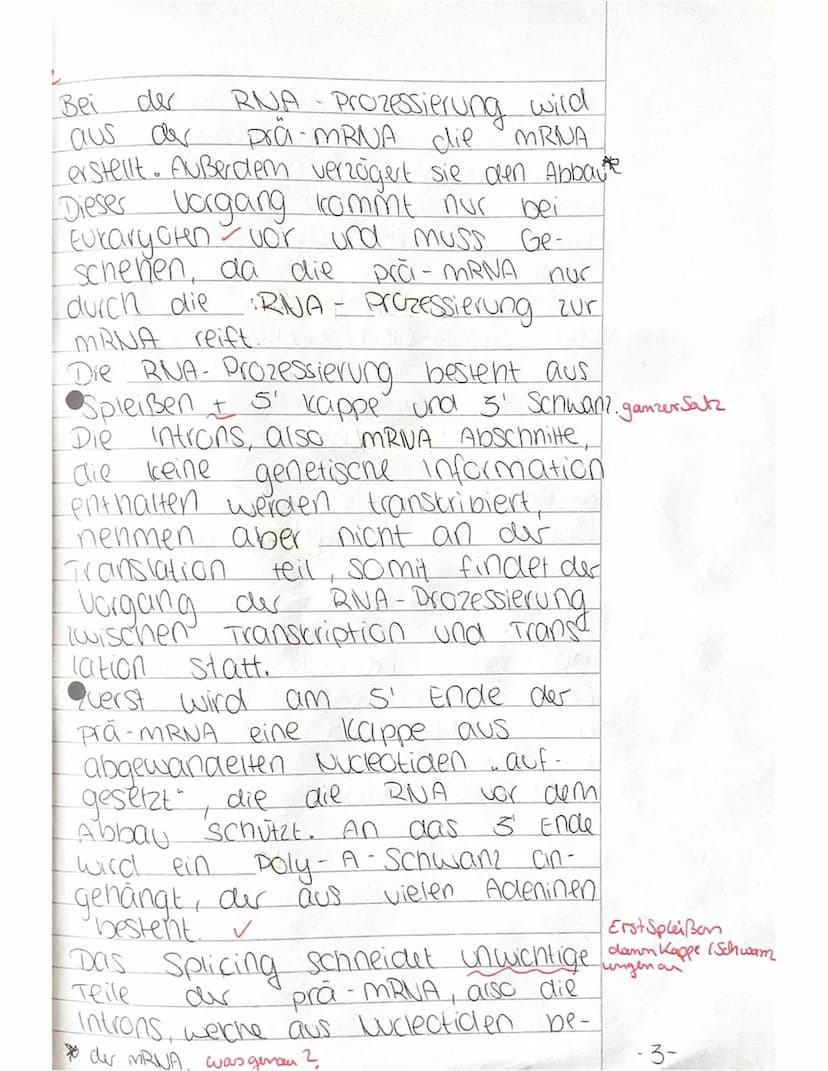 Bei der RNA-Prozessierung wird
aus der prä-mRNA die mRNA
erstellt. Außerdem verzögert sie den Abbau*
Dieser Vorgang kommt nur bei
Eukaryoten ✓ vor und muss Ge-
schehen, da die prä-mRNA nur
durch die RNA-Prozessierung zur
mRNA reift.
Die RNA-Prozessierung besteht aus
Spleißen + 5' Kappe und 3' Schwanz. ganzer Satz
Die Introns, also mRNA Abschnitte,
die keine genetische Information
enthalten werden transkribiert,
nehmen aber nicht an der
Translation teil, somit findet der
Vorgang der RNA-Prozessierung
zwischen Transcription und Trans-
lation statt.
Zuerst wird am 5' Ende der
prä-mRNA eine Kappe aus
abgewandelten Nucleotiden „auf-
gesetzt“, die die RNA vor dem
Abbau schützt. An das 3' Ende
wird ein Poly-A-Schwanz an-
gehängt, der aus vielen Adeninen
besteht. ✓
Erst Spleißen
dann Kappe / Schwanz
ungenau
Das Splicing schneidet unwichtige
Teile der prä-mRNA, also die
Introns, welche aus Nucleotiden be-
* der mRNA. was genau?
-3-